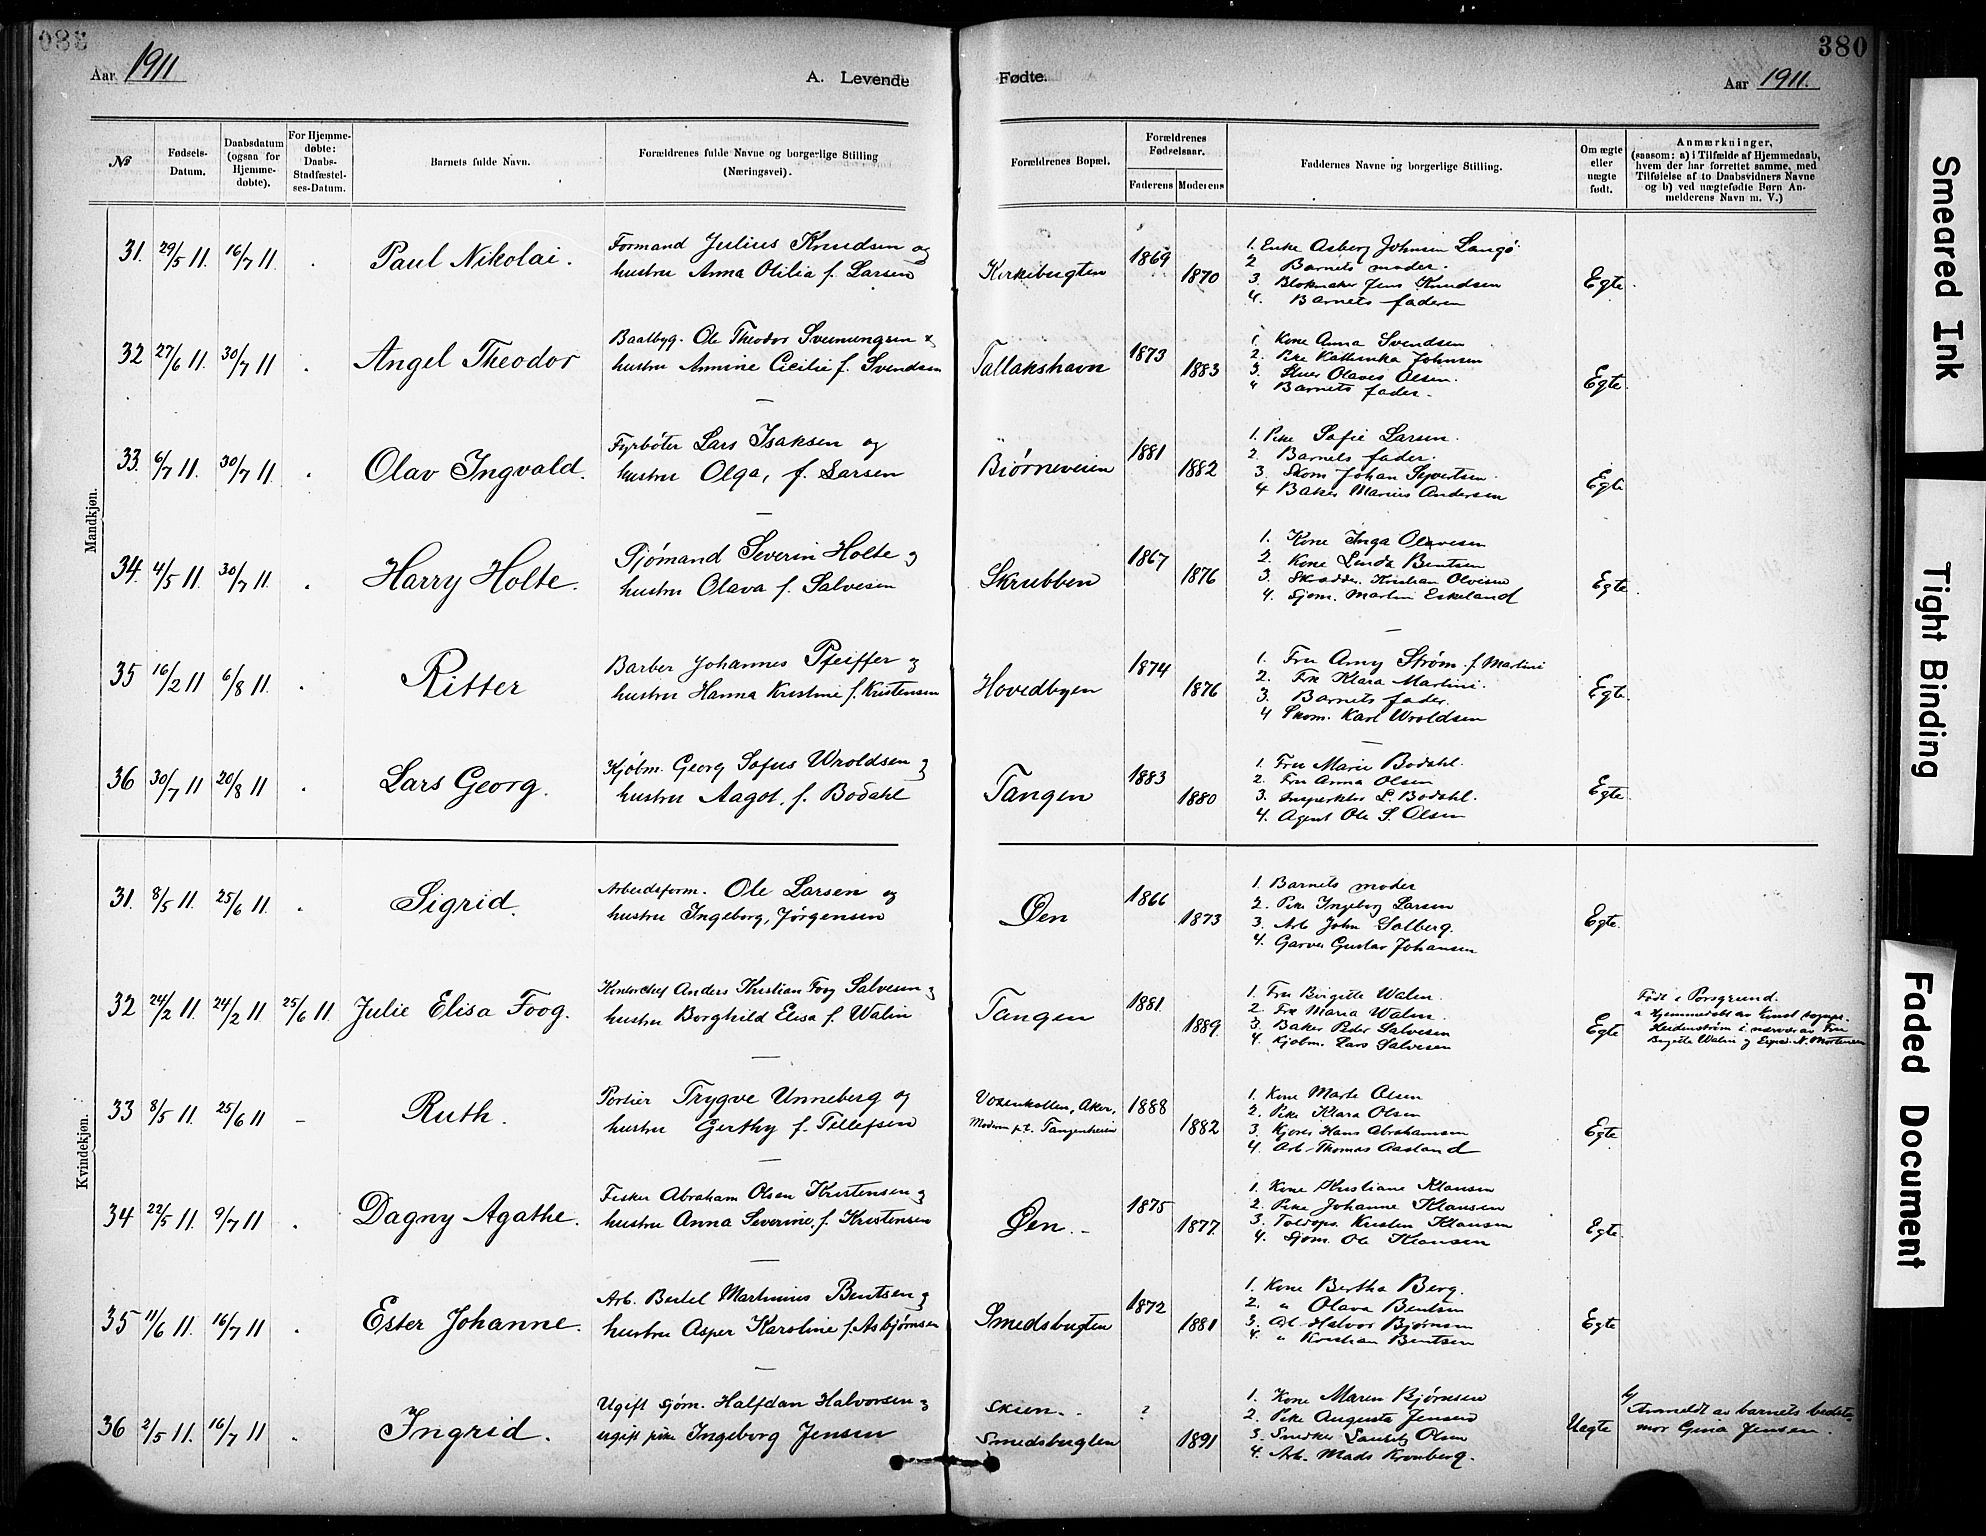 380
Aar 1911
A. Levende
Fødte.
Aar 1911.
№
Fødsels-Datum.
Daabsdatum (ogsaa for Hjemme-døbte).
For Hjemme-døbte: Daabs-Stadfæstel-ses-Datum.
Barnets fulde Navn.
Forældrenes fulde Navne og borgerlige Stilling (Næringsvei).
Forældrenes Bopæl.
Forældrenes Fødselsaar.
Faderens Moderens
Faddernes Navne og borgerlige Stilling.
Om ægte eller uægte født.
Anmærkninger, (saasom: a) i Tilfælde af Hjemmedaab, hvem der har forrettet samme, med Tilføielse af to Daabsvidners Navne og b) ved uægtefødte Børn Anmelderens Navn m. V.)
Mandkjøn.
31. 29/5 11. 16/7 11 . Paul Nikolai.
Formand Julius Knudsen og
hustru Anna Otilia f. Larsen
Kirkebugten 1869 1870
1. Enke Asberg Johnsen Langö
2 Barnets moder.
3. Blokmaker Jens Knudsen
4. Barnets faderen
Egte.
32 27/6 11. 30/7 11 . Angel Theodor
Baatbyg. Ole Theodor Sveinungsen &
hustru Annine Cicilie f. Svendsen
Tallakshavn 1873 1883
1 Kone Anna Svendsen
2. Pike Kathinka Johnsen
3. Stuer Olaves Olsen.
4 Barnets fader.
Egte.
33. 6/7 11. 30/7 11 . Olav Ingvald.
Fyrbøter Lars Isaksen og
hustru Olga, f. Larsen
Bjørneveien 1881 1882
1. Pike Sofie Larsen.
2. Barnets fader.
3. Skom Johan Syvertsen
4 Baker Marius Andersen
Egte
34. 4/5 11. 30/7 11. . Harry Holte.
Sjömand Severin Holte og
hustru Olava f. Salvesen
Skrubben 1867 1876
1. Kone Inga Olavesen
2. Kone Linda Bentsen
3. Skrædder. Kristian Olvesen
4. Sjøm. Martin Eskeland
Egte.
35 16/2 11 6/8 11. . Ritter
Barber Johannes Pfeiffer og
hustru Hanna Kristine f. Kristensen
Hovedbyen 1874 1876
1. Fru Amy Strøm f. Martini
2. Frk Klara Martini.
3. Barnets fader.
4 Skom. Karl Wroldsen
Egte.
36 30/7 11 20/8 11 . Lars Georg.
Kjøbm. Georg Sofus Wroldsen og
hustru Aagot, f. Bodahl
Tangen 1883 1880
1. Fru Marie Bodahl.
2. Fru Anna Olsen
3. Inspektör L. Bodahl.
4. Agent Ole S. Olsen
Egte.
Kvindekjøn.
31. 8/5 11. 25/6 11. . Sigrid.
Arbeidsform. Ole Larsen og
hustru Ingeborg, Jørgensen
Øen 1866 1873
1. Barnets moder
2. Pike Ingeborg Larsen
3. Arb John Solberg.
4. Garver Gustav Johansen
Egte.
32 24/2 11. 24/2 11 25/6 11 Julie Elisa Foog.
Kontorchef Anders Kristian Foog Salvesen og
hustru Borghild Elisa f. Walin
Tangen 1881. 1889.
1. Fru Birgitte Walin.
2. Frk Maria Walin.
3. Baker Peder Salvesen
4. Kjøbm. Lars Salvesen
Egte
Født i Porsgrund.
Heidenstrøm i nærvær av Fru
Birgitte Walin og Exped. N. Mortensen
33 8/5 11. 25/6 11 – Ruth.
Portier Trygve Unneberg og
hustru Gerthy f. Tellefsen
Voxenkollen, Aker,
Moderen p.t. Tangenheien
1888 1882
1. Kone Marte Olsen
2. Pike Klara Olsen
3. Kjører Hans Abrahamsen
4. Arb. Thomas Aasland
Egte
34 22/5 11. 9/7 11 . Dagny Agathe.
Fisker Abraham Olsen Kristensen og
hustru Anna Severine, f. Kristensen
Øen. 1875 1877
1. Kone Kristiane Klausen
2. Pike Johanne Klausen
3. Toldops. Kristen Klausen
4. Sjøm. Ole Klausen
Egte.
35 11/6 11. 16/7 11 . Ester Johanne.
Arb. Bertel Martinius Bentsen og
hustru Asper Karoline f. Asbjørnsen
Smedsbugten 1872 1881
1. Kone Bertha Berg.
2. " Olava Bentsen
3. Arb. Halvor Bjørnsen
4. " Kristian Bentsen
Egte
36 2/5 11. 16/7 11 . Ingrid.
Ugift sjøm. Halfdan Halvorsen og
ugift pike Ingeborg Jensen
Skien.
Smedsbugten ? 1891
1. Kone Maren Bjørnsen
2. Pike Augusta Jensen
3. Snedker Lauritz Olsen
4. Arb. Mads Kronberg.
Uegte
b/ Anmeldt av barnets bedste-
mor Gina Jensen.
Smeared Ink
Tight Binding
Faded Document